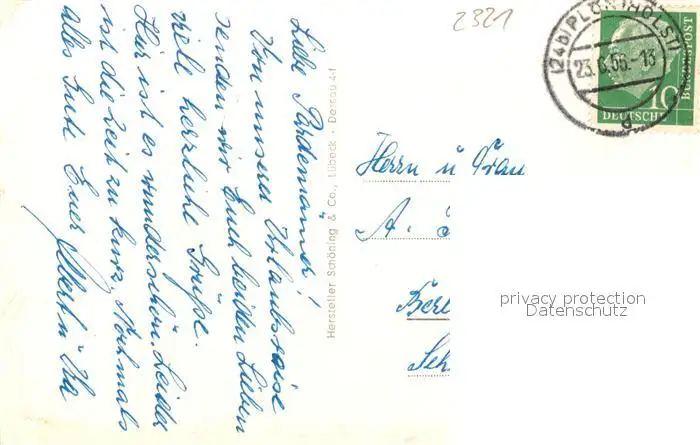 2321
(24b) PLÖN (HOLST)
23.6.56.-13
a
10
DEUTSCHE
BUNDESPOST
Liebe
Von unserer Urlaubsreise
senden wir Euch beiden Lieben
viele herzliche Grüße.
Hier ist es wunderschön. Leider
ist die Zeit zu kurz. Nochmals
alles Gute Euer Albert u. Ida
Hersteller Schöning & Co., Lübeck - Dessau 4-1
Herrn u Frau
A.
Berl
Seh
privacy protection
Datenschutz